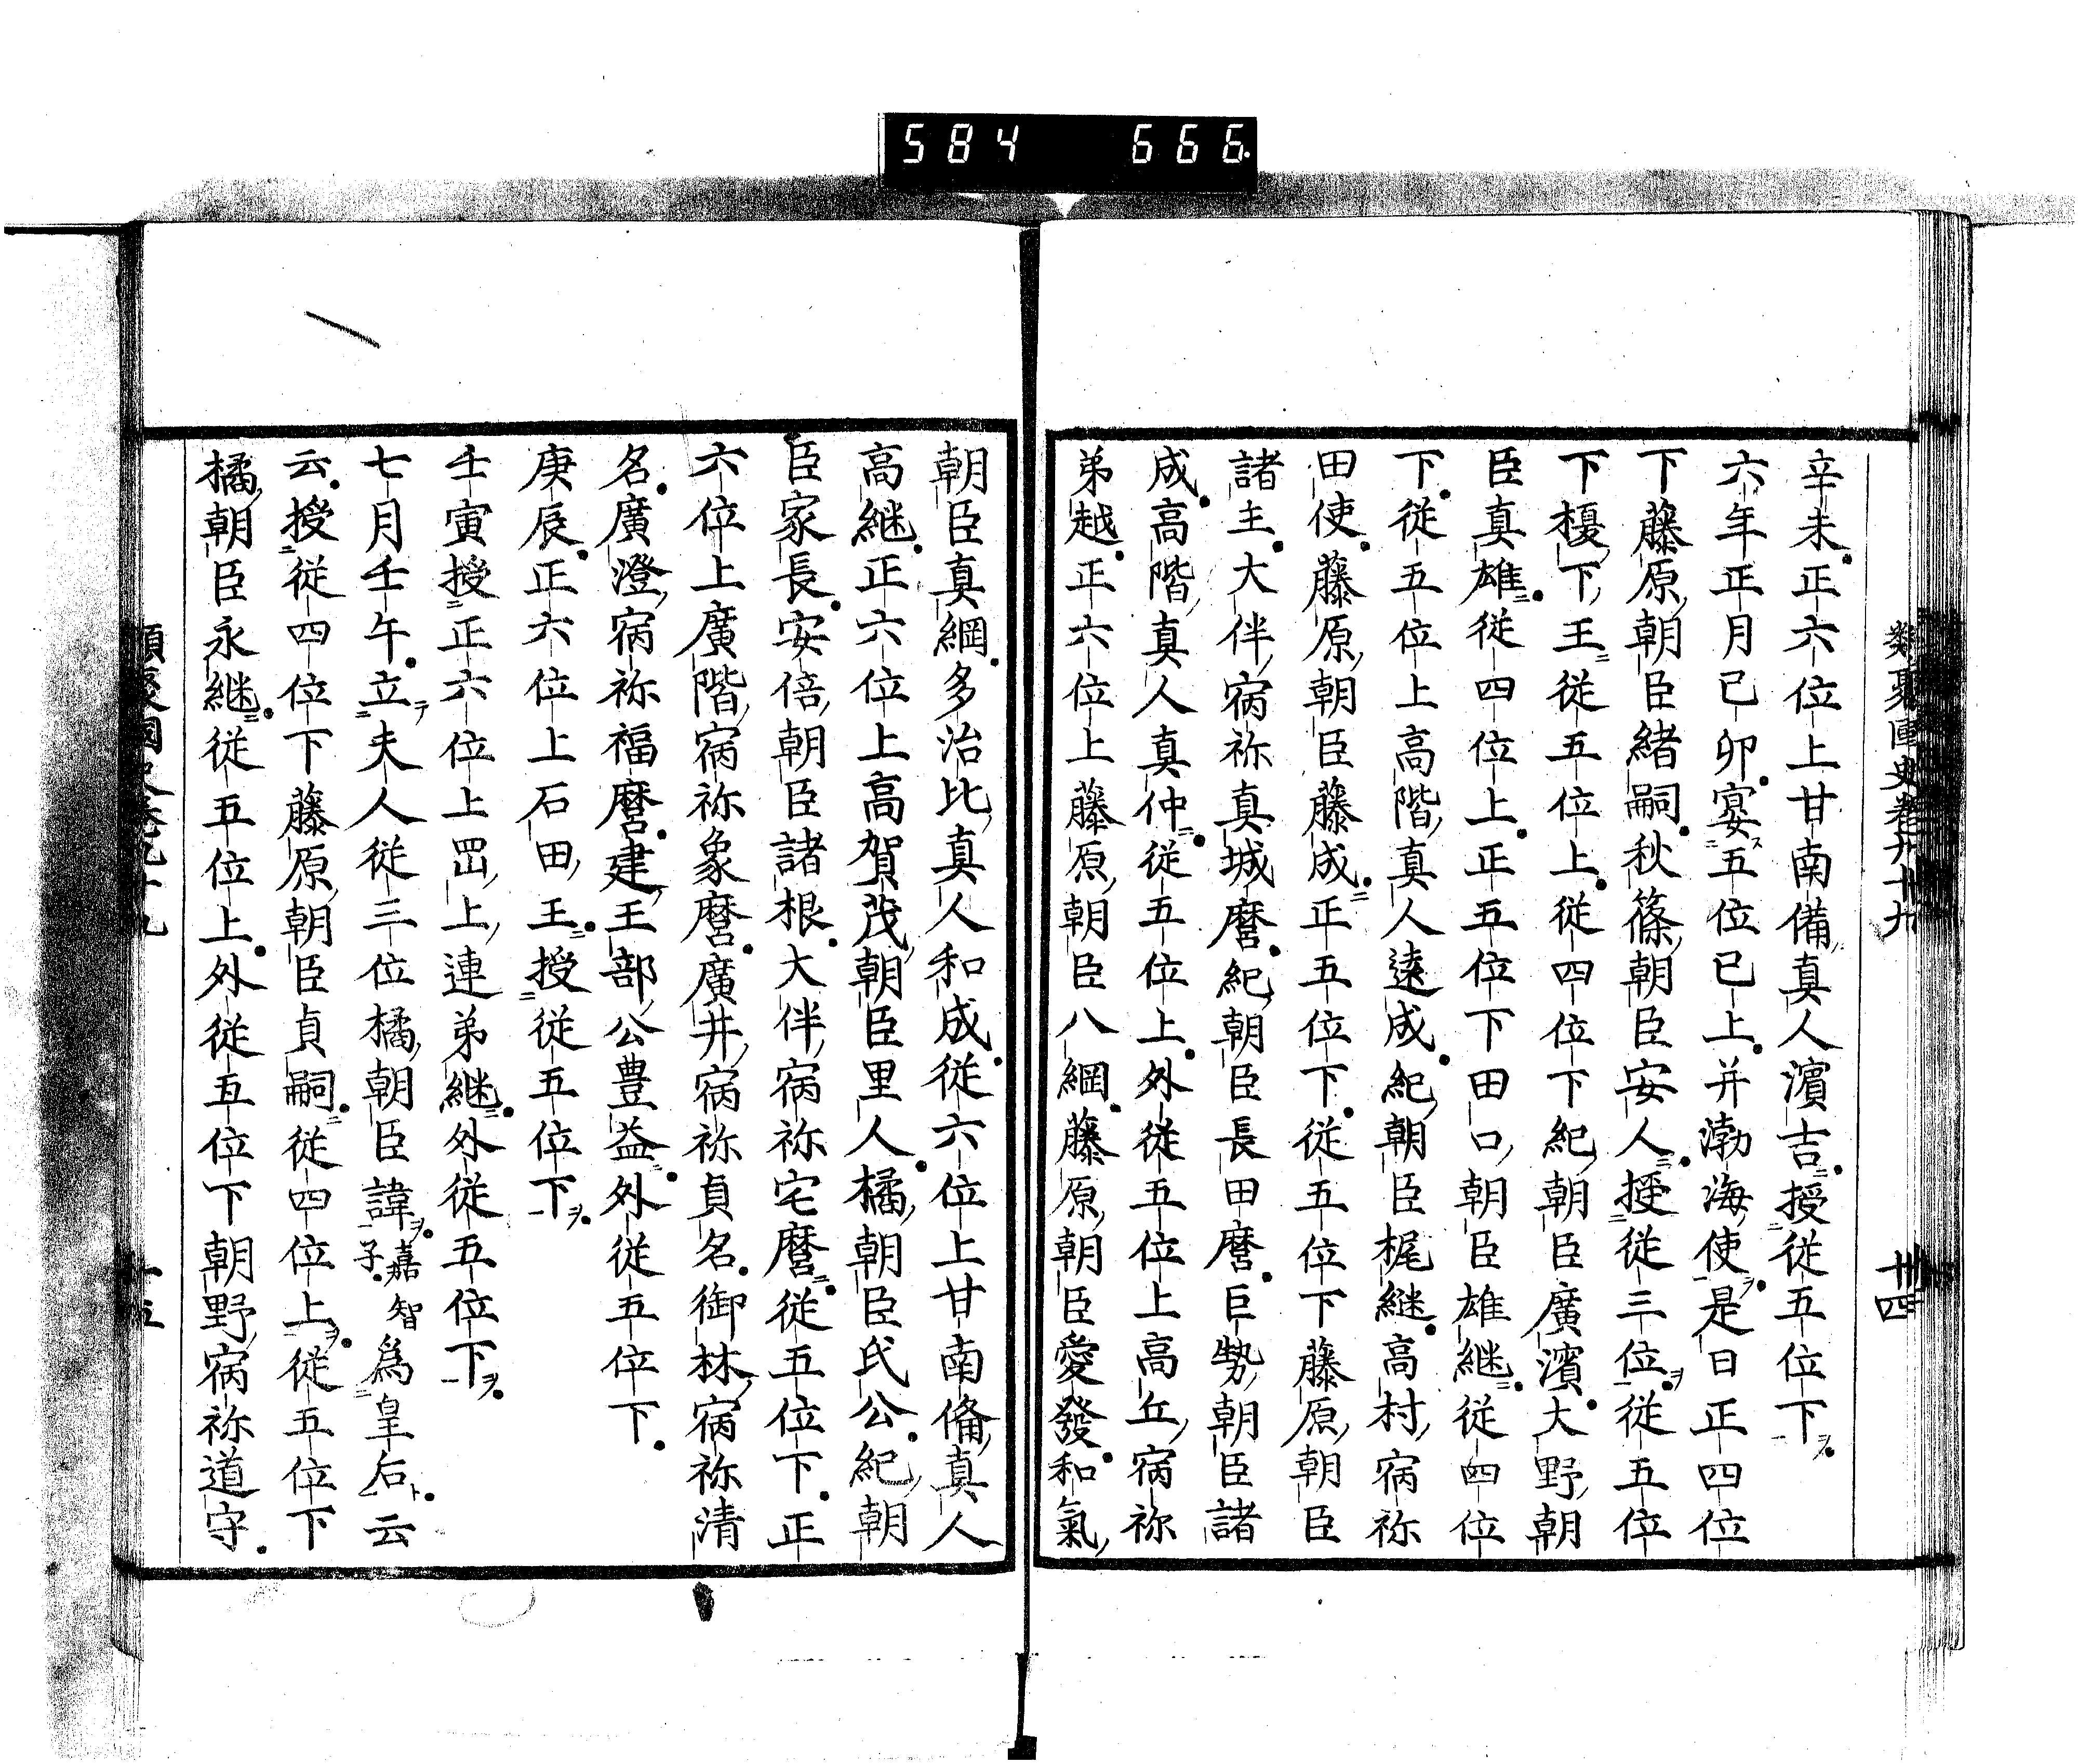 584 666
類聚國史卷九十九
廿四
辛未正六位上甘南備真人濱吉授從五位下
六年正月己卯宴五位已上并渤海使是日正四位
下藤原朝臣緒嗣秋篠朝臣安人授從三位從五位
下榎下王從五位上從四位下紀朝臣廣濱大野朝
臣真雄從四位上正五位下田口朝臣雄継從四位
下從五位上高階真人遠成紀朝臣梶継高村宿祢
田使藤原朝臣藤成正五位下從五位下藤原朝臣
諸主大伴宿祢真城麿紀朝臣長田麿巨勢朝臣諸
成高階真人真仲從五位上外從五位上高丘宿祢
弟越正六位上藤原朝臣八綱藤原朝臣愛發和氣
朝臣真綱多治比真人和成從六位上甘南備真人
高継正六位上高賀茂朝臣里人橘朝臣氏公紀朝
臣家長安倍朝臣諸根大伴宿祢宅麿從五位下正
六位上廣階宿祢象麿廣井宿祢貞名御林宿祢清
名廣澄宿祢福麿建王部公豊益外從五位下
庚辰正六位上石田王授從五位下
壬寅授正六位上罡上連弟継外從五位下
七月壬午立夫人從三位橘朝臣諱嘉智子為皇后云
云授從四位下藤原朝臣貞嗣從四位上從五位下
橘朝臣永継從五位上外從五位下朝野宿祢道守